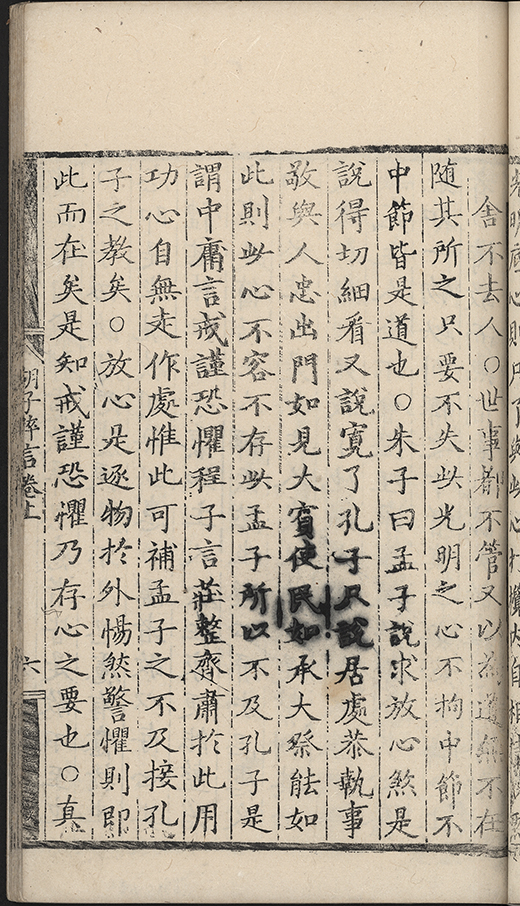 舍不去人○世事都不管又以為道無不在
隨其所之只要不失此光明之心不拘中節不
中節皆是道也○朱子曰孟子說求放心煞是
說得切細看又說寬了孔子只說居處恭執事
敬與人忠出門如見大賓使民如承大祭能如
此則此心不容不存此孟子所以不及孔子是
謂中庸言戒謹恐懼程子言莊整齊肅於此用
功心自無走作處惟此可補孟子之不及接孔
子之教矣○放心是逐物於外惕然警懼則即
此而在矣是知戒謹恐懼乃存心之要也○真
胡子粹言卷上
六